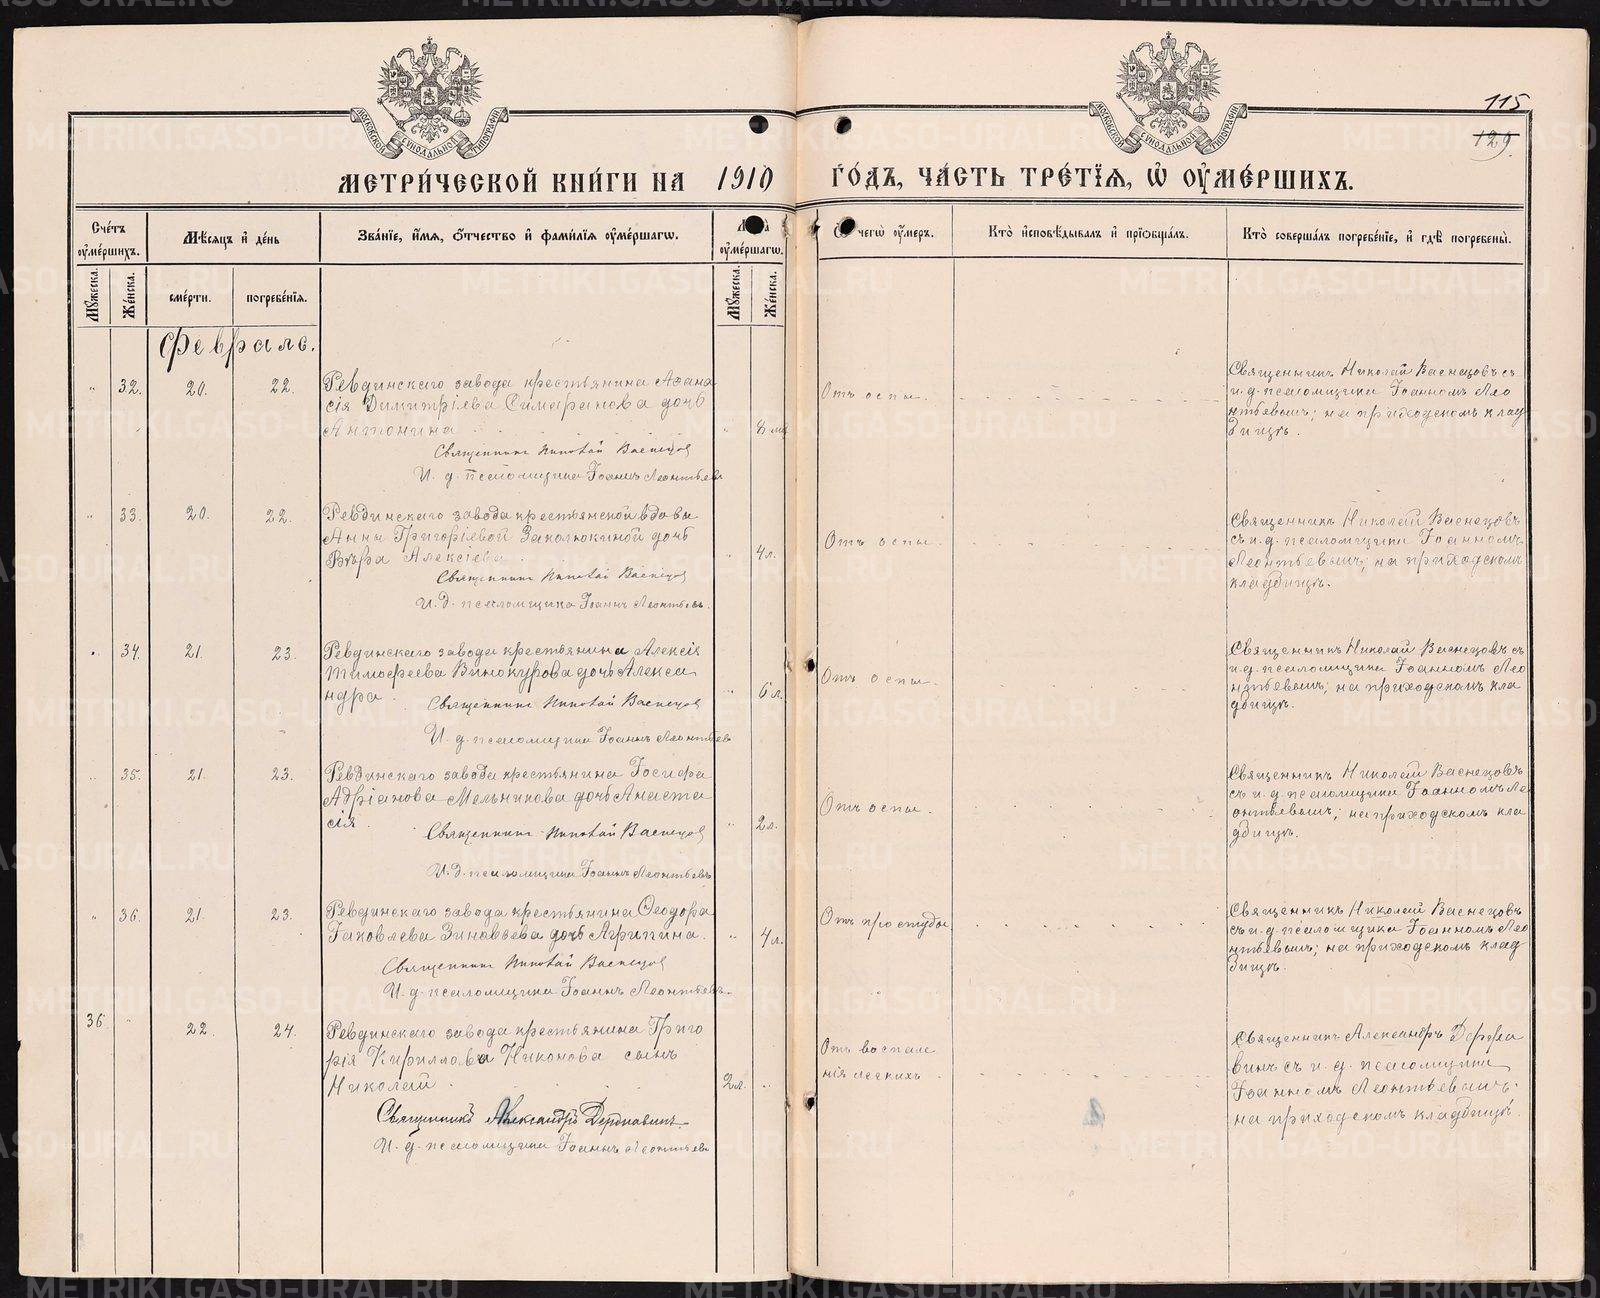 115
129
МОСКОВСКОЙ СѴНОДАЛЬНОЙ ТИПОГРАФІИ
МОСКОВСКОЙ СѴНОДАЛЬНОЙ ТИПОГРАФІИ
МЕТРИ́ЧЕСКОЙ КНИ́ГИ НА 1910 ГО́ДЪ, ЧА́СТЬ ТРЕ́ТІѦ, Ѿ ОУМЕ́РШИХЪ.
Сче́тъ оуме́ршихъ.
Мѣ́сяцъ и҆ де́нь
Зва́нїе, и҆́мя, о҆́тчество и҆ фами́лїя оуме́ршагѡ.
оуме́ршагѡ.
Ѿ чегѡ̀ оу́меръ.
Кто̀ и҆сповѣ́дывалъ и҆ прїѡбща́лъ.
Кто̀ соверша́лъ погребе́нїе, и҆ гдѣ̀ погребены̀.
Мꙋ́жеска.
Же́нска.
сме́рти.
погребе́нїѧ.
Мꙋ́жеска.
Же́нска.
Февраль.
" 32. 20. 22.
Ревдинскаго завода крестьянина Аѳана
сія Димитріева Симаранова дочь
Антонина
" 8 мц
Священникъ Николай Васнецовъ
И. д. псаломщика Іоаннъ Леонтьевъ
Отъ оспы.
Священникъ Николай Васнецовъ съ
и. д. псаломщика Іоанномъ Лео
нтьевымъ; на приходскомъ клад
бищѣ.
" 33. 20. 22.
Ревдинскаго завода крестьянской вдовы
Анны Григоріевой Заколюкиной дочь
Вѣра Алексіева
" 4 л.
Священникъ Николай Васнецовъ
И. д. псаломщика Іоаннъ Леонтьевъ.
Отъ оспы.
Священникъ Николай Васнецовъ
съ и. д. псаломщика Іоанномъ
Леонтьевымъ; на приходскомъ
кладбищѣ.
" 34. 21. 23.
Ревдинскаго завода крестьянина Алексія
Тимоѳеева Винокурова дочь Алекса
ндра.
" 6 л.
Священникъ Николай Васнецовъ
И. д. псаломщика Іоаннъ Леонтьевъ
Отъ оспы.
Священникъ Николай Васнецовъ съ
и. д. псаломщика Іоанномъ Лео
нтьевымъ; на приходскомъ кла
дбищѣ.
" 35. 21. 23.
Ревдинскаго завода крестьянина Іосифа
Адріанова Мельникова дочь Анаста
сія.
" 2 л.
Священникъ Николай Васнецовъ
И. д. псаломщика Іоаннъ Леонтьевъ
Отъ оспы.
Священникъ Николай Васнецовъ
съ и. д. псаломщика Іоанномъ Ле
онтьевымъ; на приходскомъ кла
дбищѣ.
" 36. 21. 23.
Ревдинскаго завода крестьянина Ѳеодора
Іаковлева Зиновьева дочь Агрипина.
" 4 л.
Священникъ Николай Васнецовъ
И. д. псаломщика Іоаннъ Леонтьевъ.
Отъ простуды
Священникъ Николай Васнецовъ
съ и. д. псаломщика Іоанномъ Лео
нтьевымъ; на приходскомъ клад
бищѣ.
36. " 22. 24.
Ревдинскаго завода крестьянина Григо
рія Кириллова Никонова сынъ
Николай.
2 л. "
Священникъ Александръ Державинъ
И. д. псаломщика Іоаннъ Леонтьевъ
Отъ воспале
нія легкихъ
Священникъ Александръ Держа
винъ съ и. д. псаломщика
Іоанномъ Леонтьевымъ;
на приходскомъ кладбищѣ.